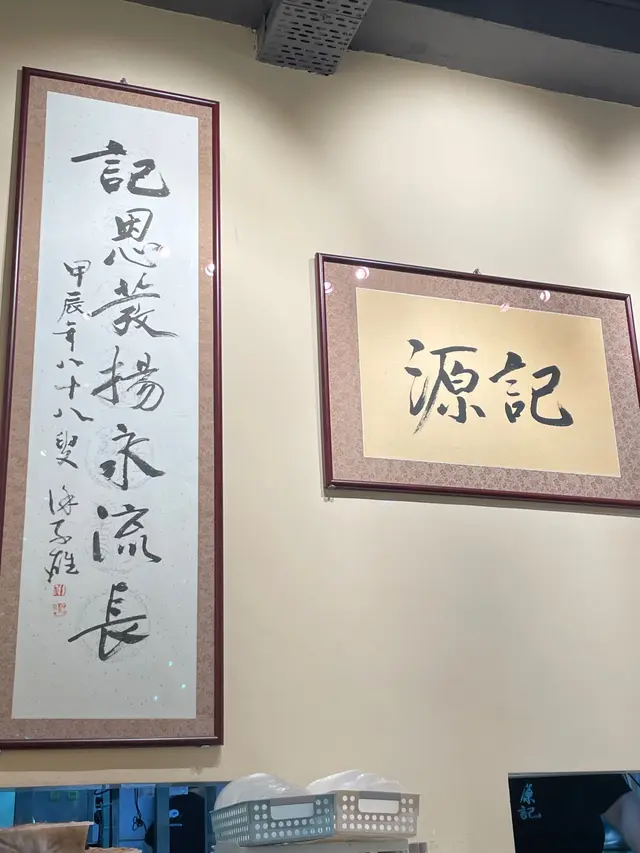 記恩發揚永流長
甲辰年八十八叟 徐子雄
源記
源記